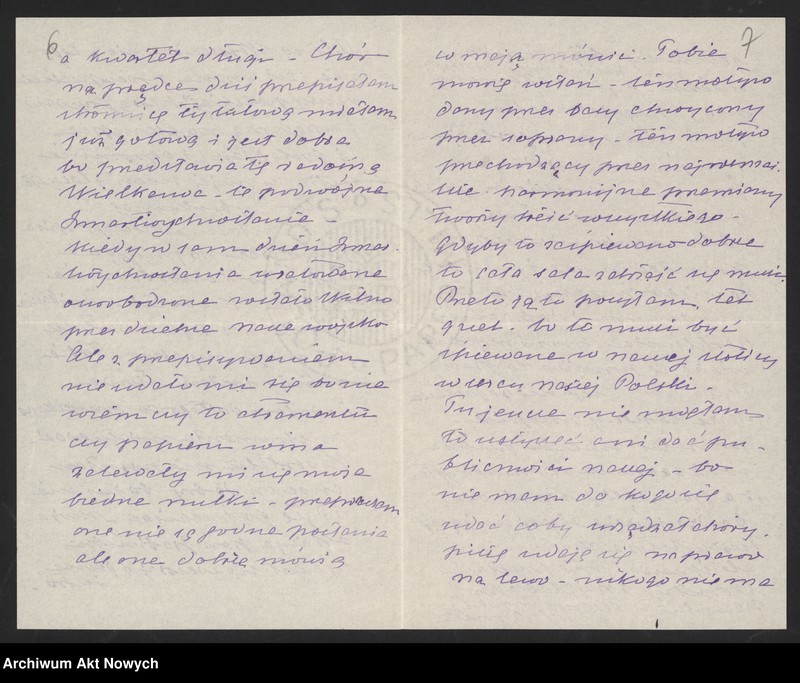 6
a kwartét długi - Chór
na prędce dziś przepisałam
stronicę tytułową miałam
już gotową i jest dobra
bo predstawia tę radosną
Wielkanoc - to podwójne
Zmartwychwstanie -
Kiedy w sam dzień Zmar-
twychwstania uratowane
oswobodzone witało Wilno
przes dzielne nasze wojsko
Ale z przepisywaniem
nie udało mi się bo nie
wiem czy to atramentu
czy papieru wina
zalewały mi się moja
biedne nutki - przepraszam
one nie są godne posłania
ale one dobrze mówią
7
w moją mówi. Tobie
mowię witań - ten motyw
dany przes basy chwycony
przes soprany - ten motyw
prechodzący przes najrozmai.
tsze harmonijne premiany
tworzy treść wszystkiego -
gdyby to zaśpiewano dobrze
to cała sala zadrżeć się musi.
Preto ją tu posyłam,
bo to musi być
śpiewane w naszej stolicy
w sercu naszej Polski.
Tu jescze nie mogłam
to usłyszeć ani dać pu-
bliczności naszej - bo
nie mam do kogo się
udać coby urządzał chóry.
piszę udaję się na prawo
na lewo - nikogo nie ma
Archiwum Akt Nowych